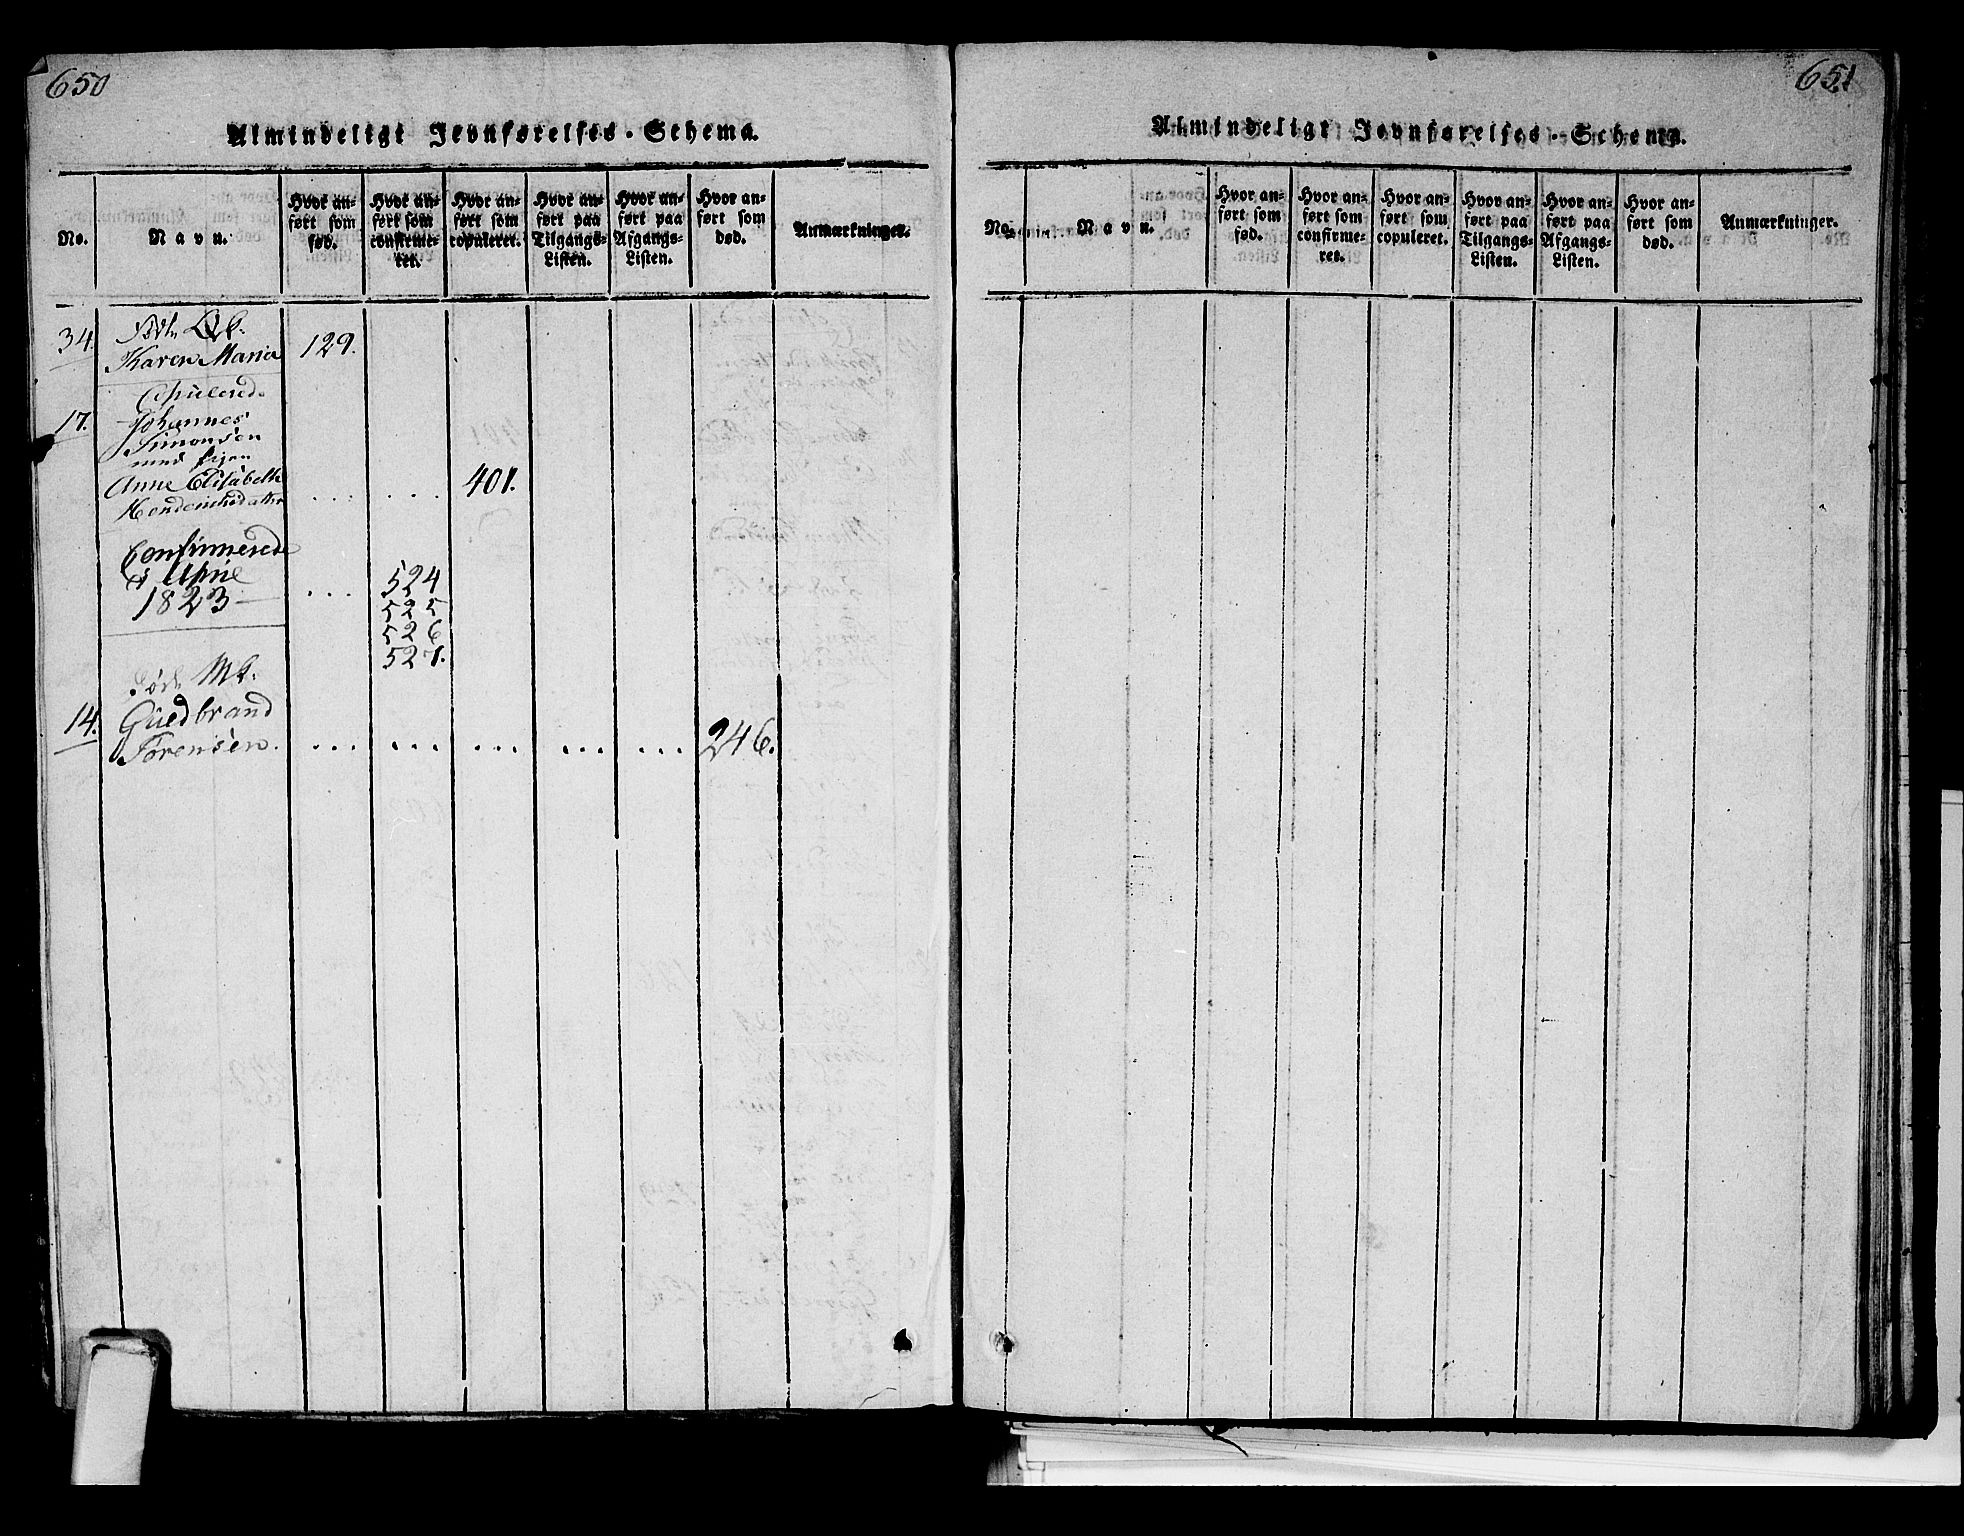 650
Almindeligt Jevnførelses-Schema.
No.
Navn.
Hvor an-
ført som
fød.
Hvor an-
ført som
confirme-
ret.
Hvor an-
ført som
copuleret.
Hvor an-
ført paa
Tilgangs-
Listen.
Hvor an-
ført paa
Afgangs-
Listen.
Hvor an-
ført som
død.
Anmærkninger.
34. Karen Maria 129.
17. Johannes
Simonsen
med pigen
Anne Elisabeth ... ... 401.
Confirmerede
i
1823 ... 524
525
526
527.
Mk.
14. Guldbrand
Sørensen. ... ... ... ... ... 246.
651
Almindeligt Jevnførelses-Schema.
No.
Navn.
Hvor an-
ført som
fød.
Hvor an-
ført som
confirme-
ret.
Hvor an-
ført som
copuleret.
Hvor an-
ført paa
Tilgangs-
Listen.
Hvor an-
ført paa
Afgangs-
Listen.
Hvor an-
ført som
død.
Anmærkninger.